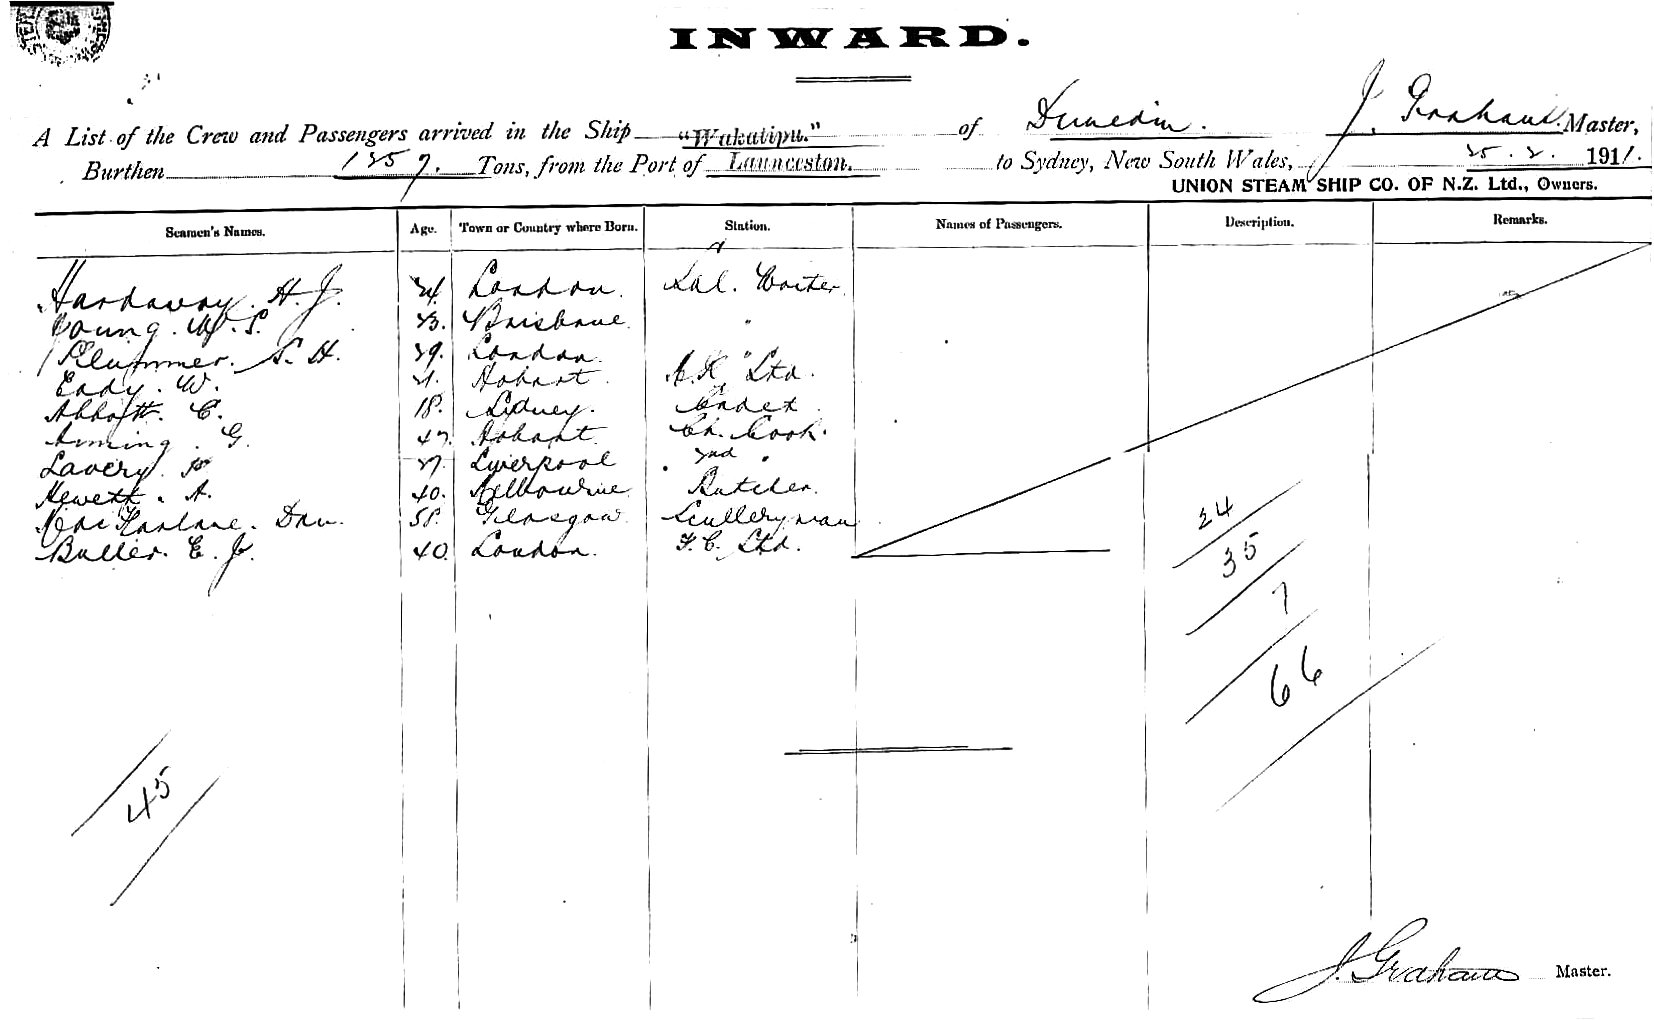 INWARD.
A List of the Crew and Passengers arrived in the Ship "Wakatipu." of Dunedin. J. Graham. Master,
Burthen 1257. Tons, from the Port of Launceston. to Sydney, New South Wales, 25.2. 1911.
UNION STEAM SHIP CO. OF N.Z. Ltd., Owners.
Seamen's Names. Age. Town or Country where Born. Station. Names of Passengers. Description. Remarks.
Hardaway. H. J. 24. London. Sal. Waiter.
Young. W. S. 23. Brisbane. "
Plummer. S. H. 29. London. "
Eady. W. 21. Hobart. Std.
Abbott. C. 18. Sydney. Cadet
G. 47. Hobart. Ch. Cook.
Lavery. 27. Liverpool 2nd "
Hewett. A. 40. Melbourne. Butcher.
MacFarlane. Dan. 58. Glasgow. Sculleryman
Buller. E. J. 40. London. F.C. Std.
24
35
7
66
45
J. Graham Master.